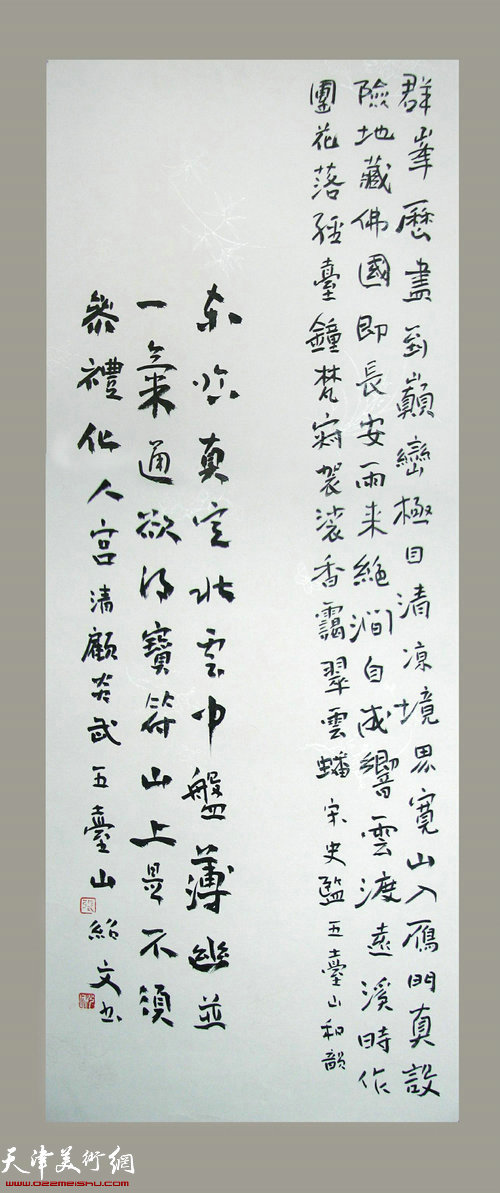 群峯歷盡到巔巒極目清涼境界寬山入雁門真設
險地藏佛國即長安雨来絶澗自成響雲渡遠溪時作
團花落經臺鐘梵寂袈裟香靄翠雲蟠宋史監五臺山和韻
東臨真定北雲中盤薄幽並
一氣通欲得寶符山上是不須
參禮化人宫清顧炎武五臺山紹文书
天津美術網
www.022meishu.com